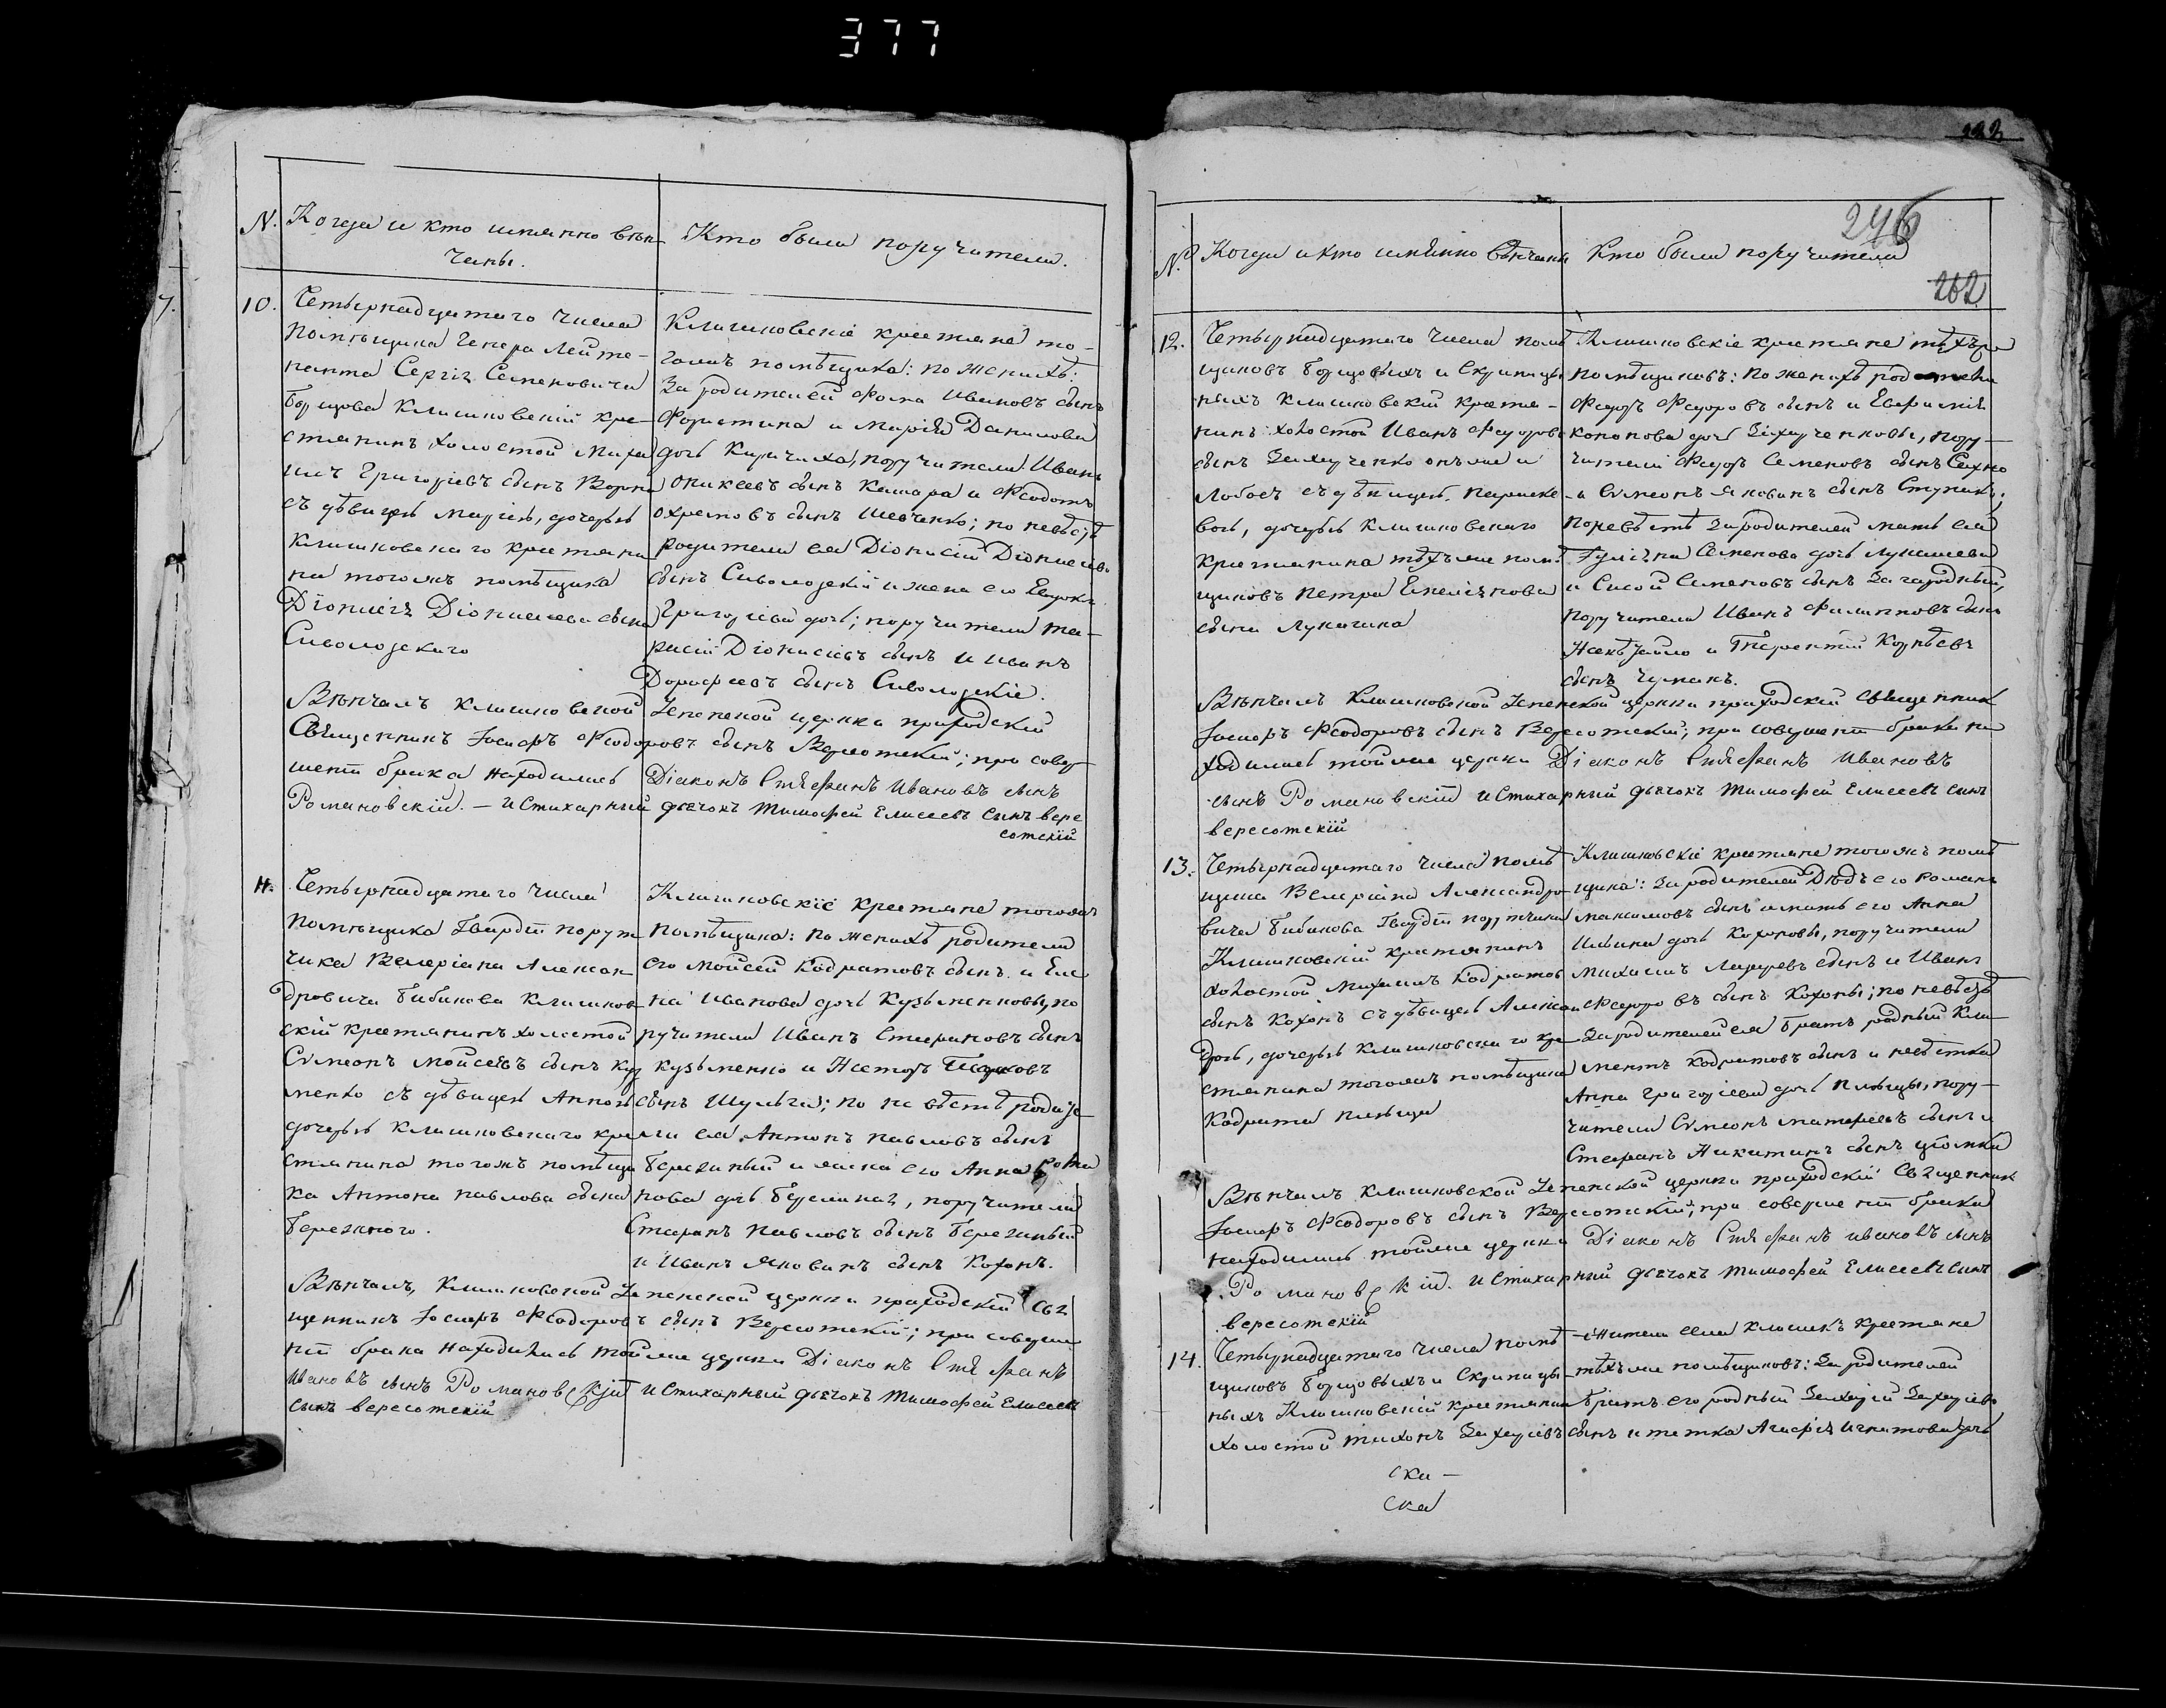 377
N. Когда и кто имянно вѣн-
чаны.
Кто были поручители.
7.
10. Четырнадцатаго числа
Помѣщика Генера Лейте-
нанта Сергія Семеновича
Борщова Клишковскій кре-
стянинъ холостой Миха
илъ Григоріевъ сынъ
съ дѣвицей Маріей, дочерью
Клишковскаго крестяни
на тогожъ помѣщика
Діонисія Діонисіева сына
Сиволозскаго
Клишковскіе крестяне то-
гожъ помѣщика: по женихѣ:
За родителей Фома Ивановъ сынъ
и Марія Данилова
дочь Киричиха, поручители Иванъ
сынъ и Феодотъ
сынъ Шевченко; по невѣстѣ
родители ея Діонисій Діонисіевъ
сынъ Сиволозскій и жена его Евдокія
Григоріева дочь; поручители Та-
расій Діонисіевъ сынъ и Иванъ
Дорофеевъ сынъ Сиволозскіе.
Вѣнчалъ Клишковской Успенской церкви приходскій
Священникъ Іосифъ Феодоровъ сынъ Вересотскій; при совер
шеніи брака находились Діаконъ Стефанъ Ивановъ сынъ
Романовскій. — и Стихарный дьячокъ Тимофей Елисеевъ сынъ Вере
сотскій
11. Четырнадцатаго числа
Помѣщика Гвардіи поруч
чика Валеріана Алексан
дровича Бибикова Клишков
скій крестянинъ холостой
Сѵмеонъ Мойсеевъ сынъ Куз
менко съ дѣвицей Анной
дочерью Клишковскаго кре
стянина тогожъ помѣщи
ка Антона Павлова сына
Бережного.
Клишковскіе крестяне тогожъ
помѣщика: по женихѣ родители
его Мойсей Кодратовъ сынъ и Еле
на Иванова дочь Кузьменковы, по
ручители Иванъ Стефановъ сынъ
Кузьменко и Несторъ
сынъ Шульга; по невѣстѣ родите
ли ея Антонъ Павловъ сынъ
Бережный и жена его Анна Рома
нова дочь Бережная, поручители
Стефанъ Павловъ сынъ Бережный
и Иванъ Яковинъ сынъ Кохонъ.
Вѣнчалъ, Клишковской Успенской церкви приходскій Свя
щенникъ Іосифъ Феодоровъ сынъ Вересотскій; при соверше
ніи брака находились тойже церкви Діаконъ Стефанъ
Ивановъ сынъ Романовскій и Стихарный дьячокъ Тимофей Елисеевъ
сынъ Вересотскій
246
262
N. Когда и кто имянно вѣнчаны
Кто были поручители
12. Четырнадцатаго числа помѣ
щиковъ Борщовыхъ и Скрипицы
ныхъ Клишковскій крестя-
нинъ холостой Иванъ Федоровъ
сынъ Захарченко онъже и
Лобасъ съ дѣвицей Параске
вой, дочерью Клишковскаго
крестянина тѣхъже помѣ
щиковъ Петра Емеліянова
сына Лукашика
Клишковскіе крестяне тѣхъже
помѣщиковъ: По женихѣ родители
Федоръ Федоровъ сынъ и Евфимія
Кононова дочь Захарченковы, пору-
чители Федоръ Семеновъ сынъ Сахно
и Сѵмеонъ Яковинъ сынъ Ступакъ;
по невѣстѣ за родителей мать ея
Гуліяна Семенова дочь Лукашева
и Сисой Семеновъ сынъ Загародный,
поручители Иванъ Филипповъ сынъ
и Терентій Корнѣевъ
сынъ Чумакъ.
Вѣнчалъ Клишковской Успенской церкви приходскій Священник
Іосифъ Феодоровъ сынъ Вересотскій; при совершеніи брака на
ходились тойже церкви Діаконъ Стефанъ Ивановъ
сынъ Романовскій и Стихарный дьячокъ Тимофей Елисеевъ сынъ
Вересотскій
13. Четырнадцатаго числа помѣ
щика Валеріана Александро
вича Бибикова Гвардіи поручика
Клишковскій крестянинъ
холостой Михаилъ Кодратов
сынъ Кохонъ съ дѣвицей Алексан
дрой, дочерью Клишковскаго кре
стянина тогожъ помѣщика
Кодрата Пливца
Клишковскіе крестяне тогожъ помѣ
щика: За родителей Дѣдъ его Романъ
Максимовъ сынъ и мать его Анна
Ильина дочь Кохоновы, поручители
Михаилъ Лазаревъ сынъ и Иванъ
Федоровъ сынъ Кохоны; по невѣстѣ
За родителей ея братъ родный Кли-
ментъ Кодратовъ сынъ и невѣстка
Анна Григоріева дочь Пливцы, пору-
чители Сѵмеонъ Матфеевъ сынъ и
Стефанъ Никитинъ сынъ
Вѣнчалъ Клишковской Успенской церкви приходскій Священник
Іосифъ Феодоровъ сынъ Вересотскій; при совершеніи брака
находились тойже церкви Діаконъ Стефанъ Ивановъ сынъ
Романовскій. и Стихарный дьячокъ Тимофей Елисеевъ сынъ
Вересотскій
14. Четырнадцатаго числа помѣ
щиковъ Борщовыхъ и Скрипицы
ныхъ Клишковскій крестянин
холостой Тихонъ Захаріевъ
Жители села Клишекъ крестяне
тѣхъже помѣщиковъ: За родителей
братъ его родный Захарій Захаріевъ
сынъ и тетка Агафія Игнатова дочь
Ска-
Ска